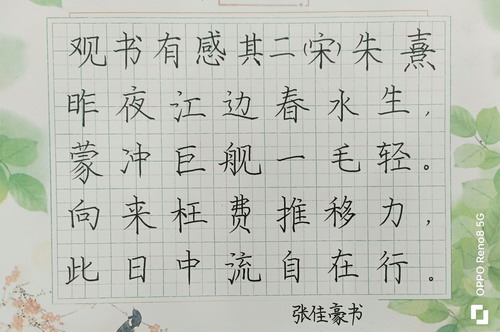 观书有感其二(宋)朱熹
昨夜江边春水生,
蒙冲巨舰一毛轻。
向来枉费推移力,
此日中流自在行。
张佳豪书
OPPO Reno8 5G